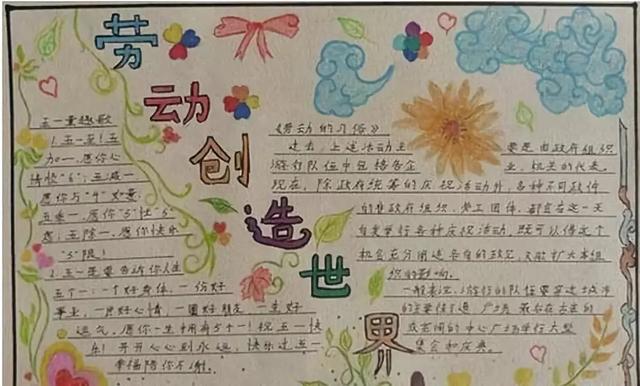 劳动创造世界
五一童趣歌
1.五一至！五
加一,愿你心
情快"6"；五减一
愿你与"4"如意；
五乘一,愿你"5"忧"5"
虑；五除一,愿你快乐
"5"限！
2.五一是要告诉你人生
五个一：一个好身体,一份好
事业,一片好心情,一圈好朋友,一生好
运气,愿你一生拥有5个一！祝五一快
乐！开开心心到永远,快乐过五一
幸福陪你不谢。
《劳动的习俗》
过去,上述活动主要是由政府组织
游行队伍中包括各企业、机关的代表。
现在,除政府统筹的庆祝活动外,各种不同政件
的非政府组织、劳工团体,都会在这一天
自发举行各种庆祝活动,既可以借这个
机会充分阐述各自的政见,又能扩大本组
织的影响。
一般来说,游行的队伍要穿过城市
的主要街道、广场,最后在古老的
或空阔的中心广场举行大型
集会和庆典。